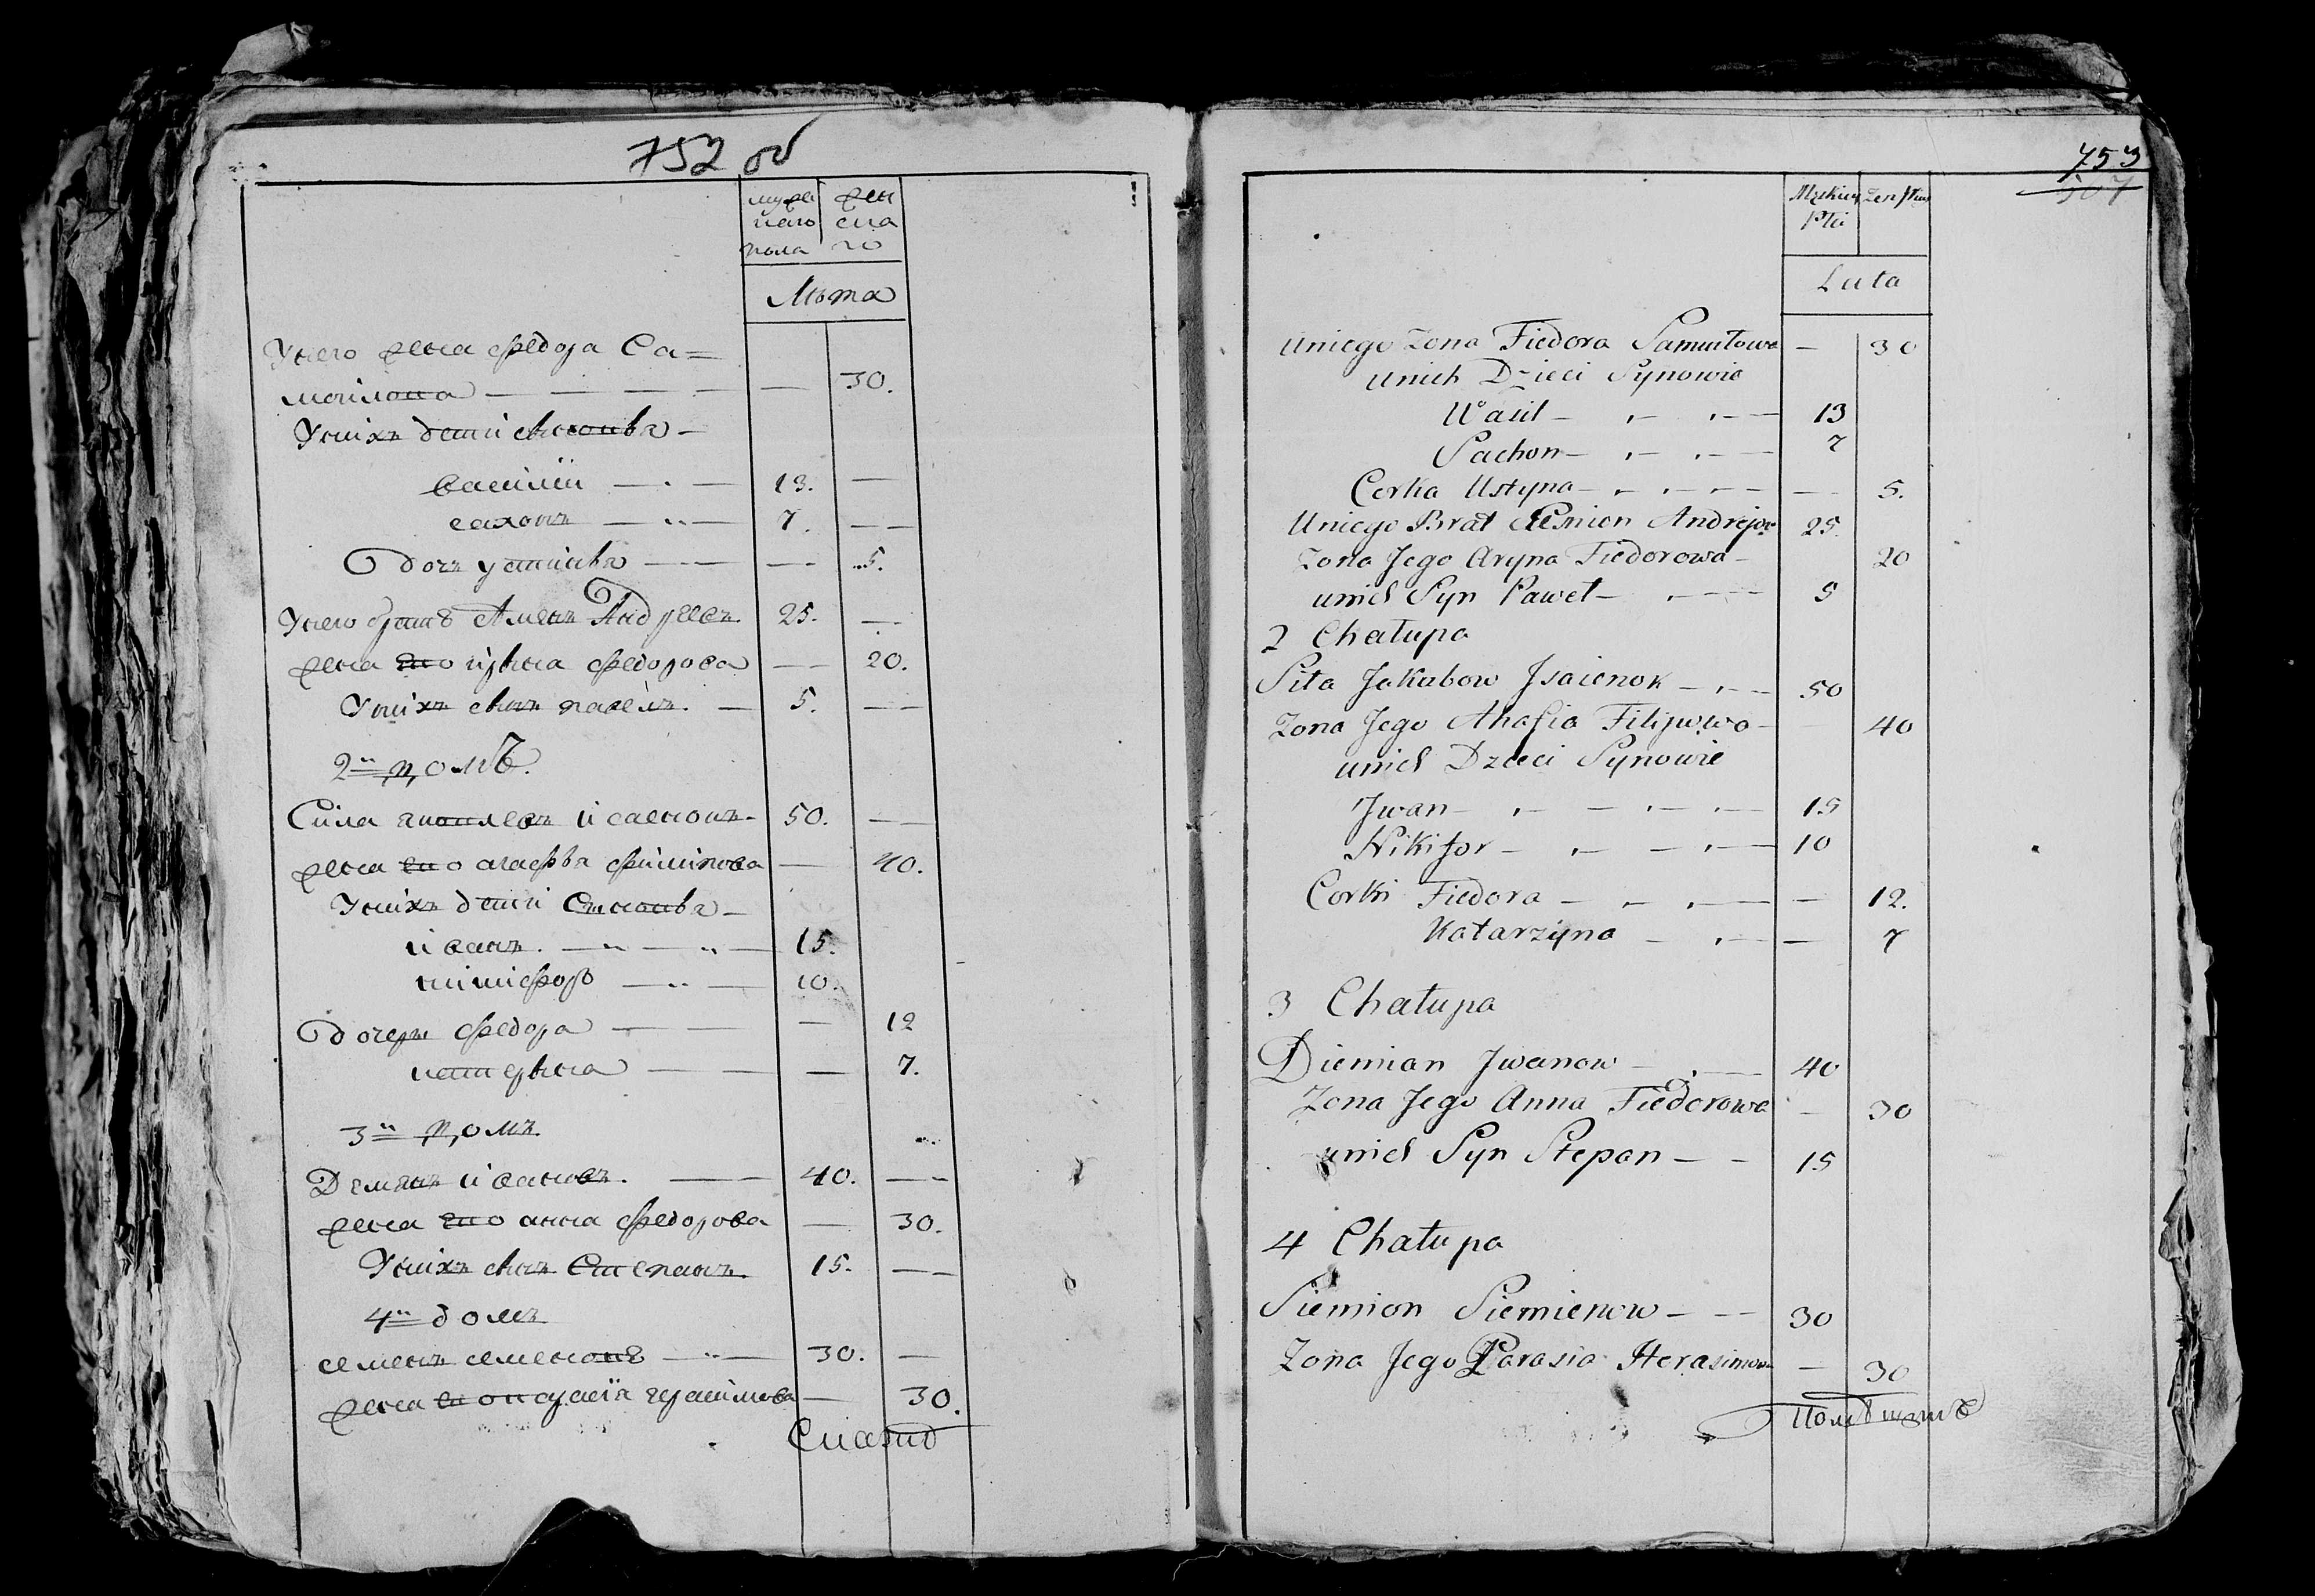 752 об
муже
скаго
пола
жен
ска
го
Лѣта
Унего жена федора Са=
мойлова — 30.
Унихъ дети сыновья —
василий — 13. —
сахонъ — 7. —
Дочь устинья — 5.
Унего братъ Аменъ Андреевъ 25. —
жена его ирина федорова — 20.
Унихъ сынъ павелъ. — 5. —
2й домъ.
Сила яковлевъ исаенокъ 50. —
жена его агафья филипова — 40.
Унихъ дети Сыновья —
иванъ. — 15.
никифоръ — 10.
Дочери федора — 12
катерина — 7.
3й домъ
Демянъ ивановъ. — 40. —
жена его анна федорова — 30.
Унихъ сынъ Степанъ. 15. —
4й домъ
семенъ семеновъ — 30. —
жена его герасимова — 30.
753
507
Męskiey
Płci
Zenskiey
Lata
Uniego Zona Fiedora Samułowa — 30
Unich Dzieci Synowie
Wasil — 13
Sachon — 7
Corka Ustyna — 5.
Uniego Brat Siemion Andrejow 25.
Zona Jego Aryna Fiedorowa — 20
unich Syn Paweł — 5
2 Chałupa
Siła Jakubow Jsaienok — 50
Zona Jego Ahafia Filipowa — 40
unich Dzieci Synowie
Jwan — 15
Nikifor — 10
Corki Fiedora — 12.
Katarzyna — 7
3 Chałupa
Diemian Jwanow — 40
Zona Jego Anna Fiedorowa — 30
unich Syn Stepan — 15
4 Chałupa
Siemion Siemienow — 30
Zona Jego Parasia Herasimowa — 30